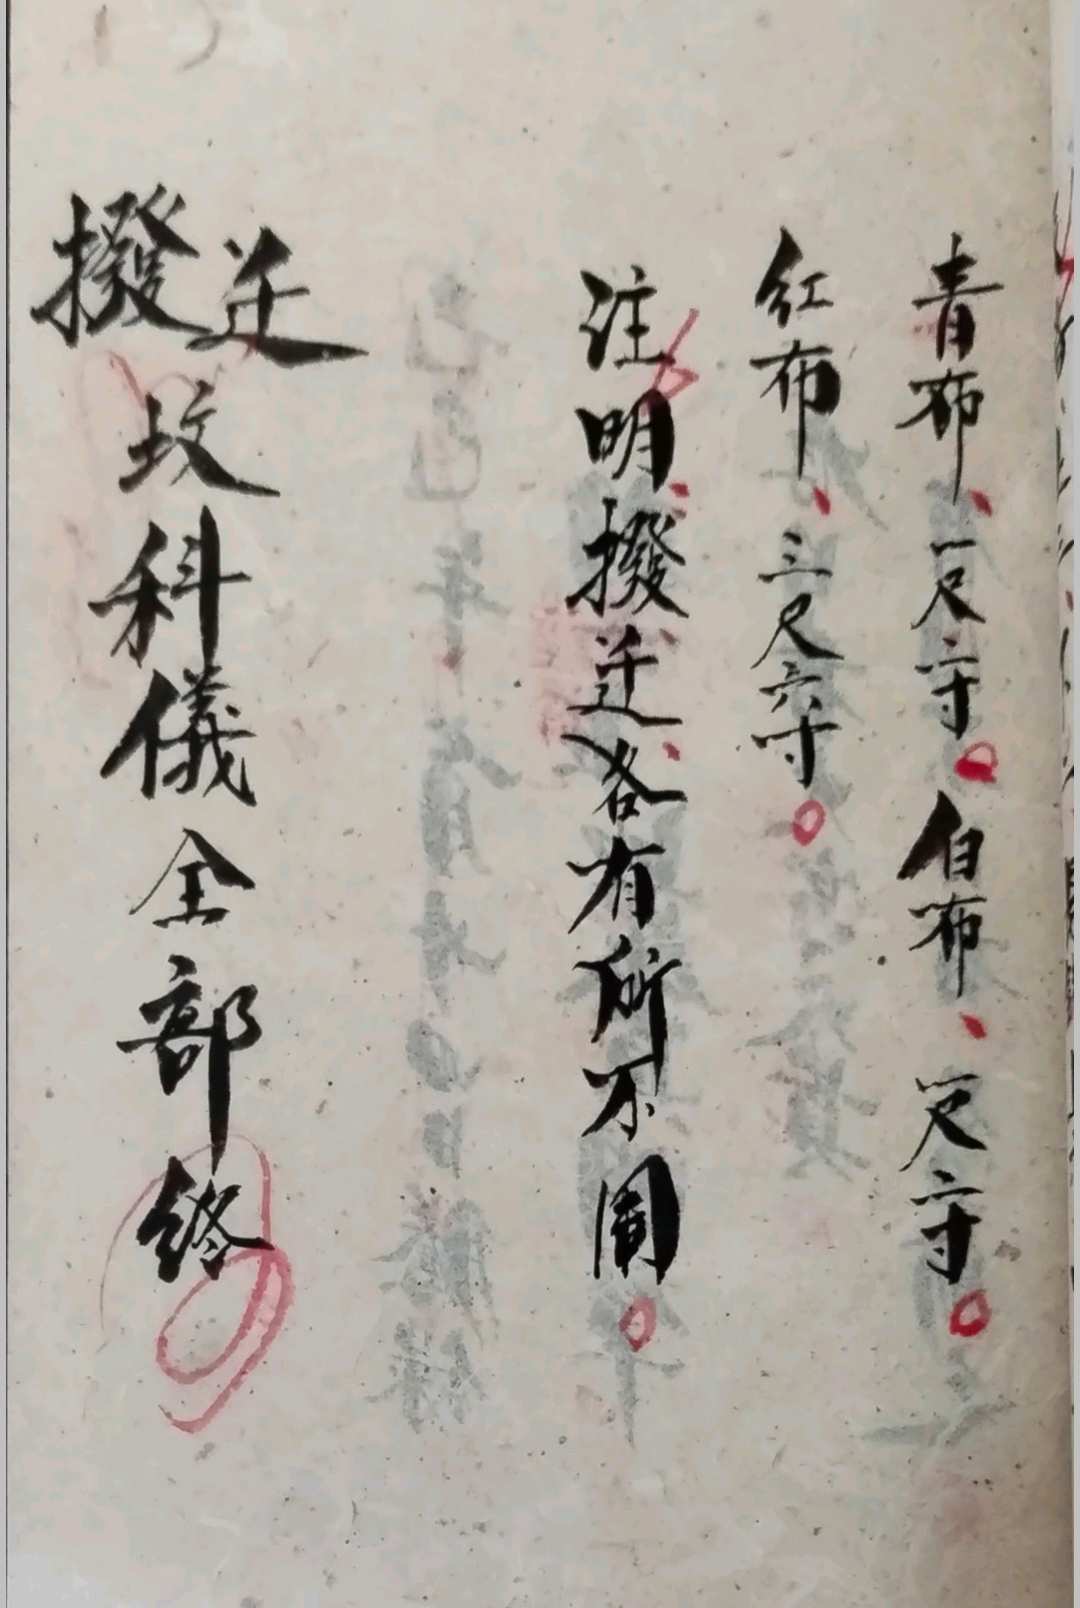 青布、一尺二寸。白布、一尺二寸。
红布、三尺六寸。
注明撥迁各有所不同。
撥迁坟科儀全部终